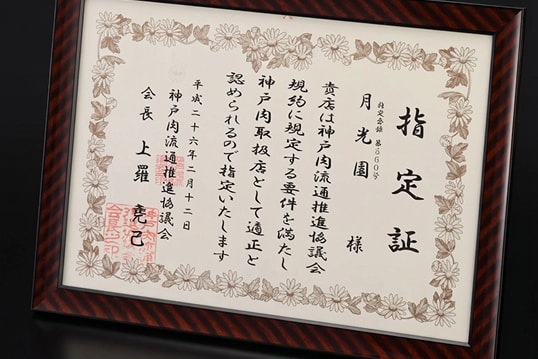 指定証
指定登録 第660号
月光園 様
貴店は神戸肉流通推進協議会
規約に規定する要件を満たし
神戸肉取扱店として適正と
認められるので指定いたします
平成二十六年二月十二日
神戸肉流通推進協議会
会長 上羅 堯己